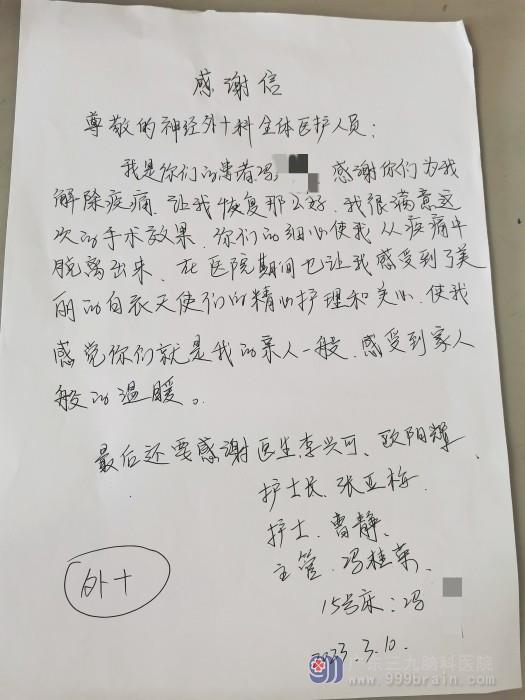 感谢信
尊敬的神经外十科全体医护人员:
我是你们的患者冯 感谢你们为我
解除疾痛、让我恢复那么好、我很满意这
次的手术效果、你们的细心使我从疾痛中
脱离出来、在医院期间也让我感受到了美
丽的白衣天使们的精心护理和关心、使我
感觉你们就是我的亲人一般、感受到家人
般的温暖。
最后还要感谢医生李兴可、欧阳辉、
护士长、张亚梅、
护士、曹静、
主管、冯桂荣、
外十
15号床:冯
2023.3.10.
广东三九脑科医院
www.999brain.com